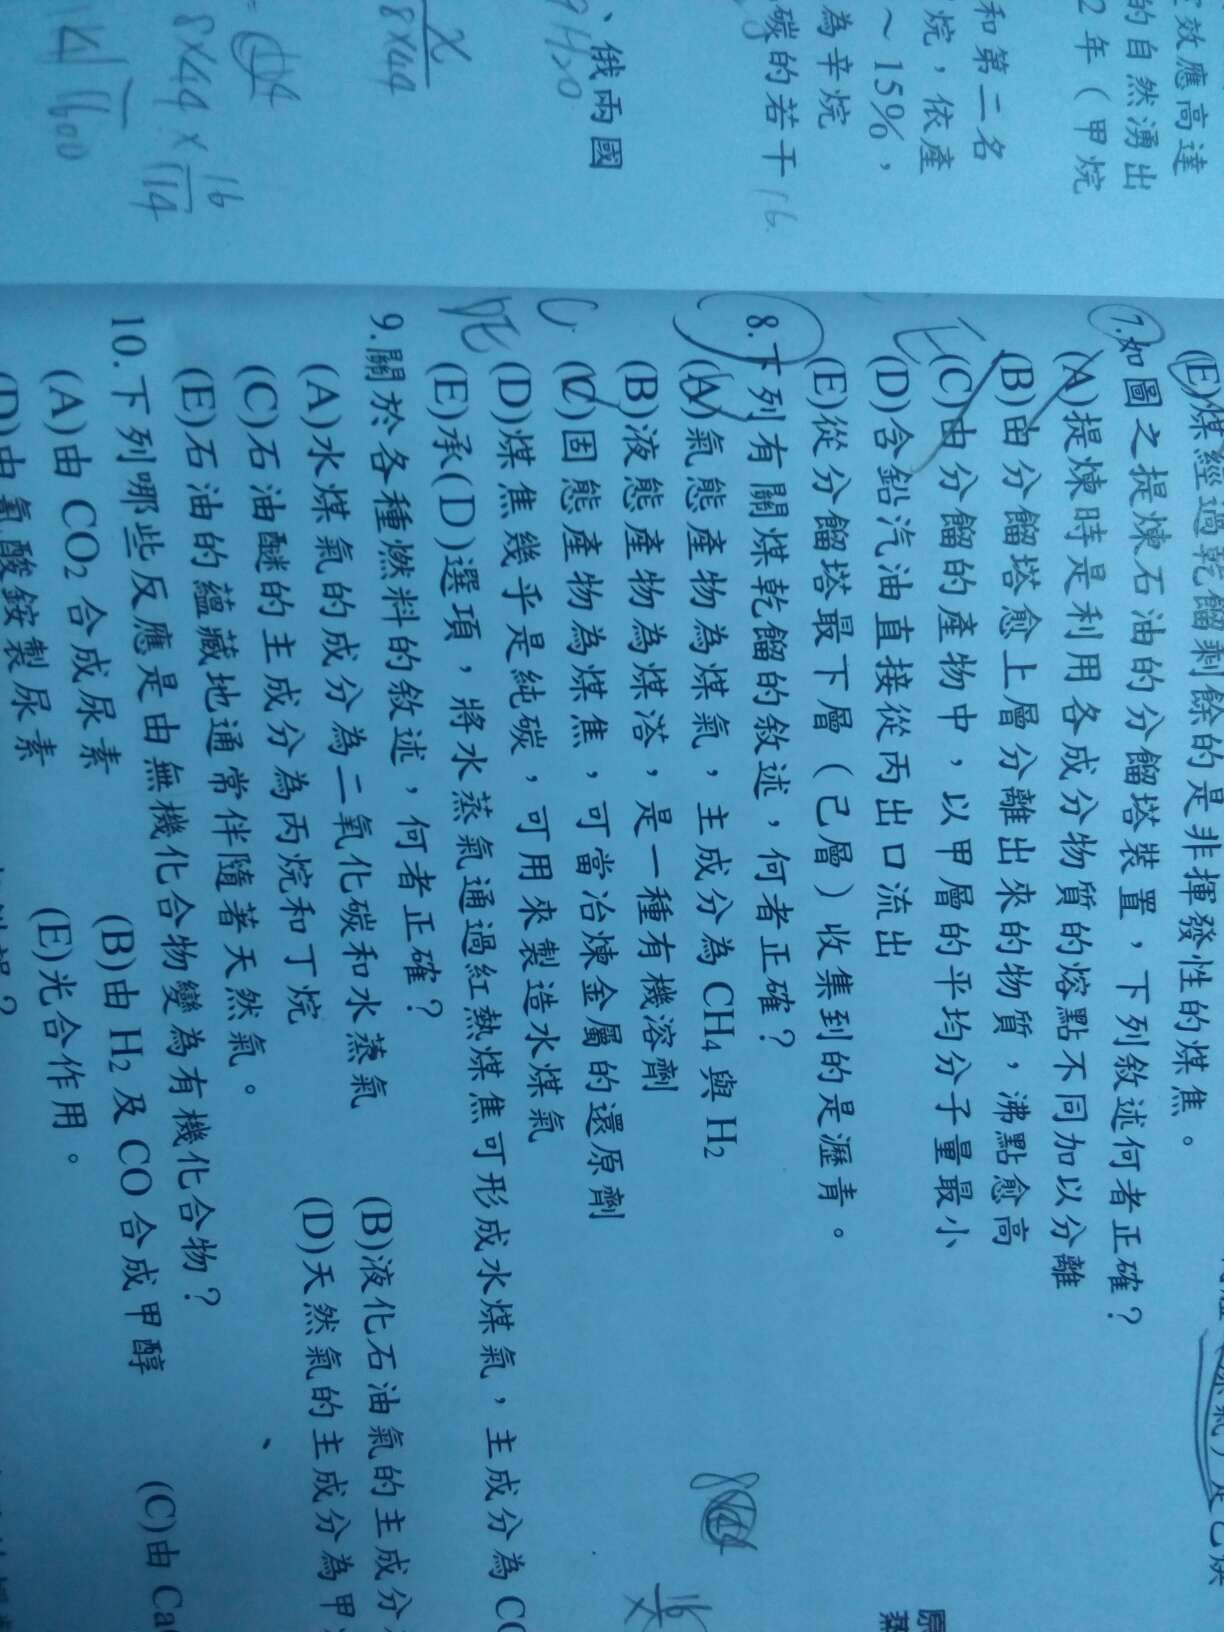 效應高達
的自然湧出
2 年（甲烷
和第二名
烷，依產
～15%，
為辛烷
碳的若干
16
、俄兩國
9H₂O
x
8×44
8×44 × 16
114
1600
(E)煤經過乾餾剩餘的是非揮發性的煤焦。
7.如圖之提煉石油的分餾塔裝置，下列敘述何者正確？
(A)提煉時是利用各成分物質的熔點不同加以分離
(B)由分餾塔愈上層分離出來的物質，沸點愈高
(C)由分餾的產物中，以甲層的平均分子量最小
(D)含鉛汽油直接從丙出口流出
(E)從分餾塔最下層（己層）收集到的是瀝青。
8.下列有關煤乾餾的敘述，何者正確？
(A)氣態產物為煤氣，主成分為 CH₄ 與 H₂
(B)液態產物為煤溚，是一種有機溶劑
(C)固態產物為煤焦，可當冶煉金屬的還原劑
(D)煤焦幾乎是純碳，可用來製造水煤氣
(E)承(D)選項，將水蒸氣通過紅熱煤焦可形成水煤氣，主成分為 CO
9.關於各種燃料的敘述，何者正確？
(A)水煤氣的成分為二氧化碳和水蒸氣 (B)液化石油氣的主成分
(C)石油醚的主成分為丙烷和丁烷 (D)天然氣的主成分為甲
(E)石油的蘊藏地通常伴隨著天然氣。
10.下列哪些反應是由無機化合物變為有機化合物？
(A)由 CO₂ 合成尿素 (B)由 H₂ 及 CO 合成甲醇 (C)由 Ca
(D)由氰酸銨製尿素 (E)光合作用。
原
蒸